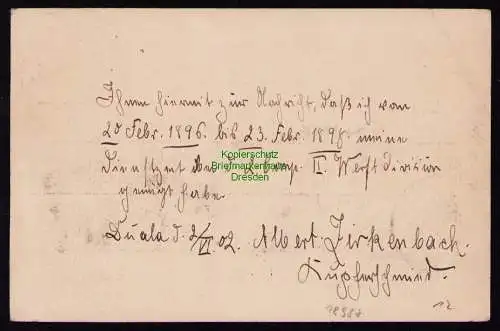 Ihnen hiermit zur Nachricht, daß ich vom
20 Febr. 1896. bis 23. Febr. 1898. meine
Dienstzeit bei der 2. Comp. II. Werft division
genügt habe.
Duala d. 2/VI. 02. Albert Zirkenbach.
Kupferschmied.
Kopierschutz
Briefmarkenhaus
Dresden
12